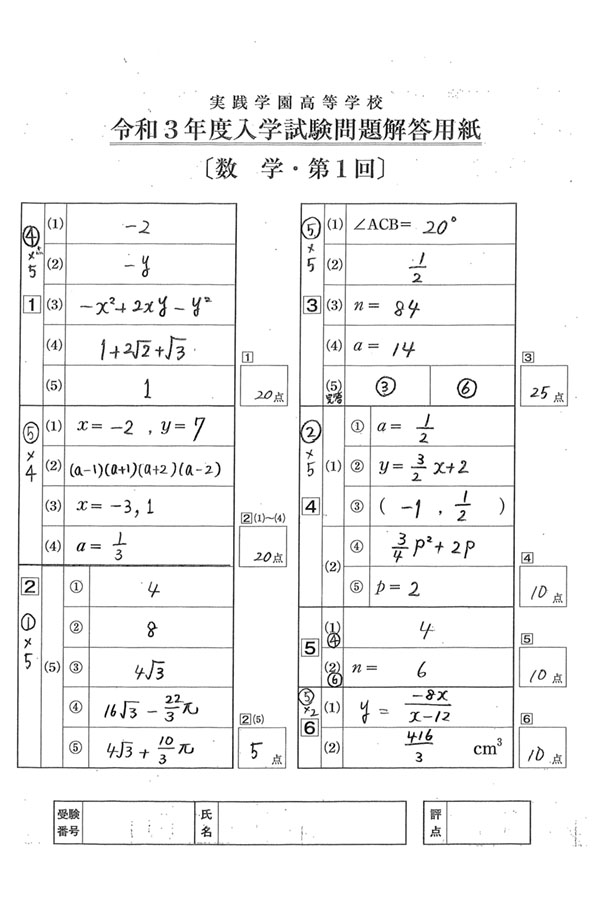 実践学園高等学校
令和3年度入学試験問題解答用紙
〔数 学・第1回〕
④×5
1
(1) -2
(2) -y
(3) -x²+2xy-y²
(4) 1+2√2+√3
(5) 1
1
20点
⑤×4
(1) x= -2 , y= 7
(2) (a-1)(a+1)(a+2)(a-2)
(3) x= -3, 1
(4) a= 1/3
2(1)~(4)
20点
2
①×5
(5)
① 4
② 8
③ 4√3
④ 16√3 - 22/3 π
⑤ 4√3 + 10/3 π
2(5)
5点
⑤×5
3
(1) ∠ACB= 20°
(2) 1/2
(3) n= 84
(4) a= 14
(5) 完答 ③ ⑥
3
25点
②×5
4
(1)
① a= 1/2
② y= 3/2 x+2
③ ( -1 , 1/2 )
(2)
④ 3/4 p²+2p
⑤ p= 2
4
10点
5
(1) ④ 4
(2) ⑥ n= 6
5
10点
⑤×2
6
(1) y = -8x/x-12
(2) 416/3 cm³
6
10点
受験番号
氏名
評点